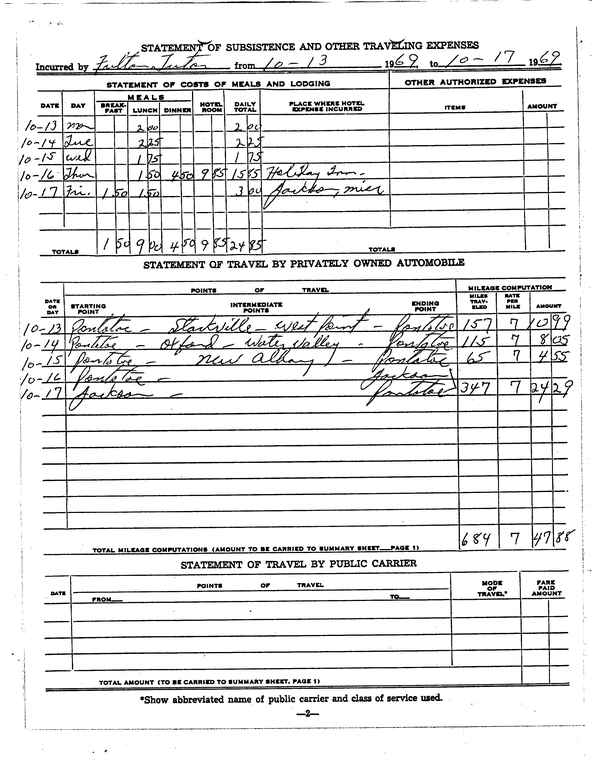 STATEMENT OF SUBSISTENCE AND OTHER TRAVELING EXPENSES
Incurred by Fulton Tutor from 10-13 1969 to 10-17 1969
STATEMENT OF COSTS OF MEALS AND LODGING OTHER AUTHORIZED EXPENSES
MEALS
DATE DAY BREAK-FAST LUNCH DINNER HOTEL ROOM DAILY TOTAL PLACE WHERE HOTEL EXPENSE INCURRED ITEMS AMOUNT
10-13 mon 2 00 2 00
10-14 Tue 2 25 2 25
10-15 wed 1 75 1 75
10-16 Thur 1 50 4 50 9 85 15 85 Holiday Inn
10-17 Fri. 1 50 1 50 3 00 Jackson, miss
TOTALS 1 50 9 00 4 50 9 85 24 85 TOTALS
STATEMENT OF TRAVEL BY PRIVATELY OWNED AUTOMOBILE
POINTS OF TRAVEL MILEAGE COMPUTATION
DATE OR DAY STARTING POINT INTERMEDIATE POINTS ENDING POINT MILES TRAV-ELED RATE PER MILE AMOUNT
10-13 Pontotoc - Starkville - West Point - Pontotoc 157 7 10 99
10-14 Pontotoc - Oxford - Water Valley - Pontotoc 115 7 8 05
10-15 Pontotoc - New Albany - Pontotoc 65 7 4 55
10-16 Pontotoc - Jackson
10-17 Jackson - Pontotoc 347 7 24 29
TOTAL MILEAGE COMPUTATIONS (AMOUNT TO BE CARRIED TO SUMMARY SHEET PAGE 1) 684 7 47 88
STATEMENT OF TRAVEL BY PUBLIC CARRIER
DATE POINTS OF TRAVEL MODE OF TRAVEL* FARE PAID AMOUNT
FROM TO
TOTAL AMOUNT (TO BE CARRIED TO SUMMARY SHEET, PAGE 1)
*Show abbreviated name of public carrier and class of service used.
—2—